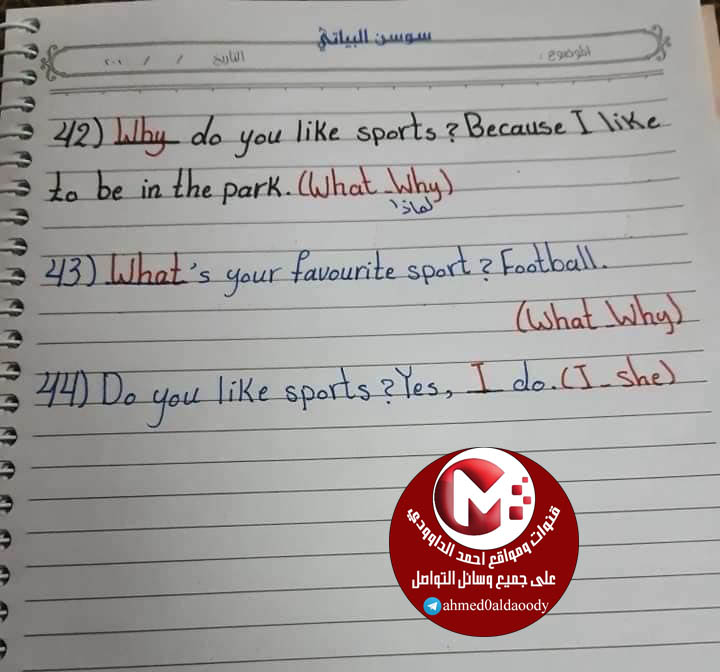 سوسن البياتي
الموضوع: التاريخ / / ٢٠٠
42) Why do you like sports? Because I like
to be in the park. (What_Why)
لماذا
43) What's your favourite sport? Football.
(What_Why)
44) Do you like sports? Yes, I do. (I_she)
M
قنوات ومواقع احمد الداوودي
على جميع وسائل التواصل
ahmed0aldaoody